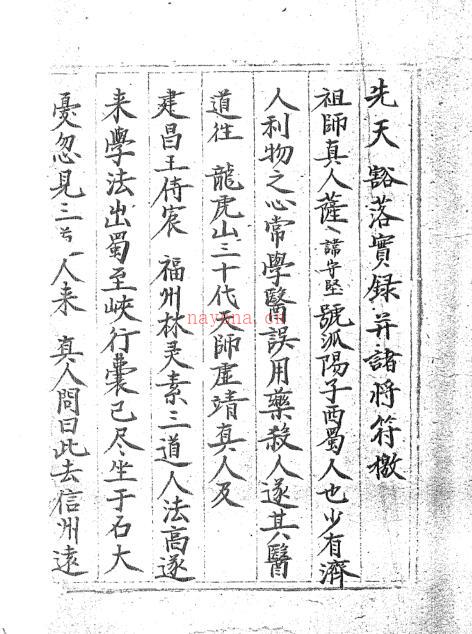 先天豁落實録并諸将符檄
祖師真人薩、諱守堅號派陽子西蜀人也少有濟
人利物之心常學醫誤用藥殺人遂其醫
道往 龍虎山三十代天師虚靖真人及
建昌王侍宸 福州林灵素三道人法高遂
来學法出蜀至峡行囊已尽坐于石大
憂忽見三人来 真人問曰此去信州遠
nayona.cn